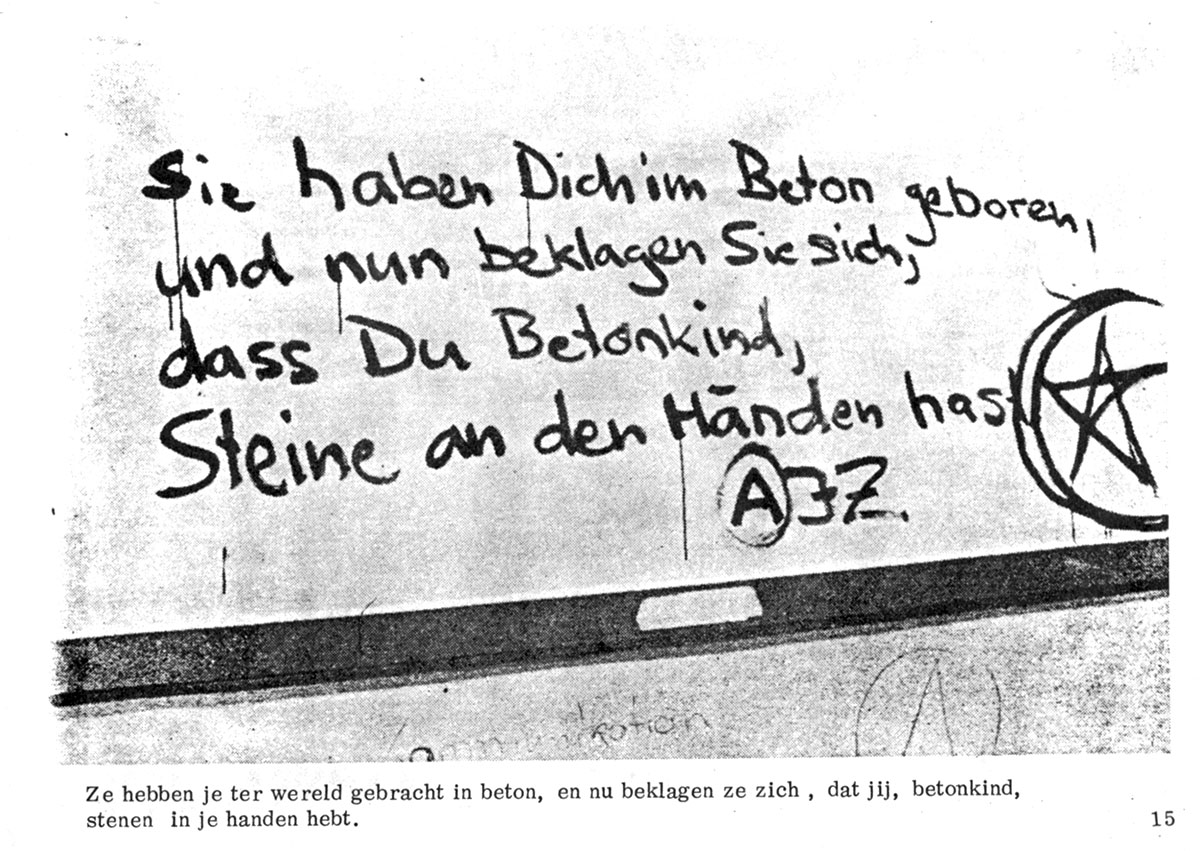 Sie haben Dich im Beton geboren,
und nun beklagen Sie sich,
dass Du Betonkind,
Steine an den Händen hast
AJZ.
A
Ze hebben je ter wereld gebracht in beton, en nu beklagen ze zich , dat jij, betonkind,
stenen in je handen hebt.
15